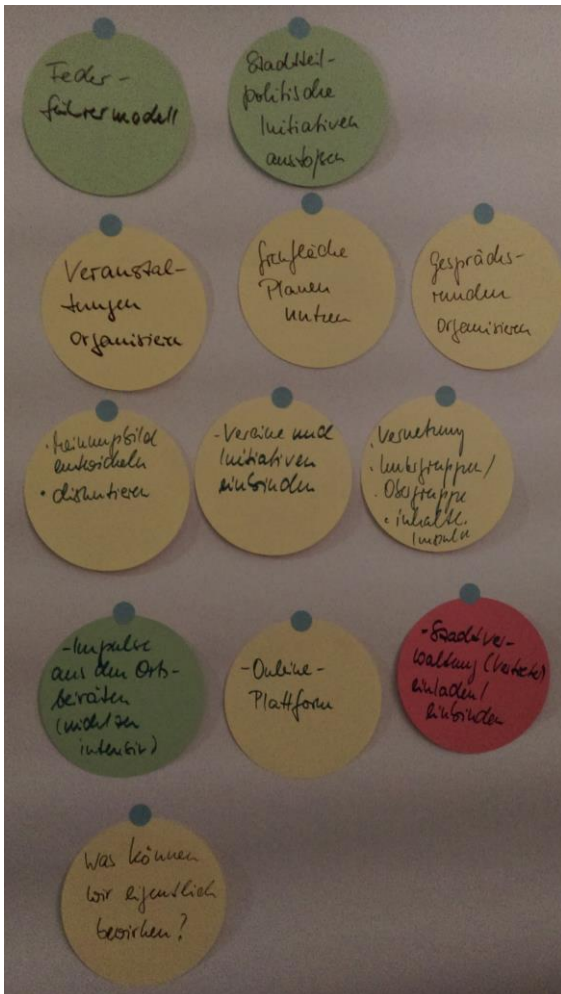 Feder-
führermodell
Stadtteil-
politische
Initiativen
anstoßen
Veranstal-
tungen
organisieren
Grünfläche
Planen
nutzen
Gesprächs-
runden
organisieren
· Meinungsbild
entwickeln
• diskutieren
- Vereine und
Initiativen
einbinden
· Vernetzung
· Untergruppen/
· Obergruppe
• inhaltl.
Impulse
- Impulse
aus den Orts-
beiräten
(nicht zu
intensiv)
- Online-
Plattform
- Stadtver-
waltung (Vertreter)
einladen/
einbinden
Was können
wir eigentlich
bewirken?